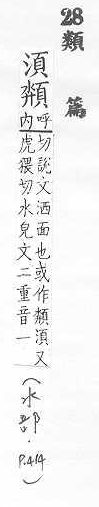 28類篇
湏頮
呼内切說文洒面也或作頮湏又
虎猥切水皃文二重音一
(水部.P.414)